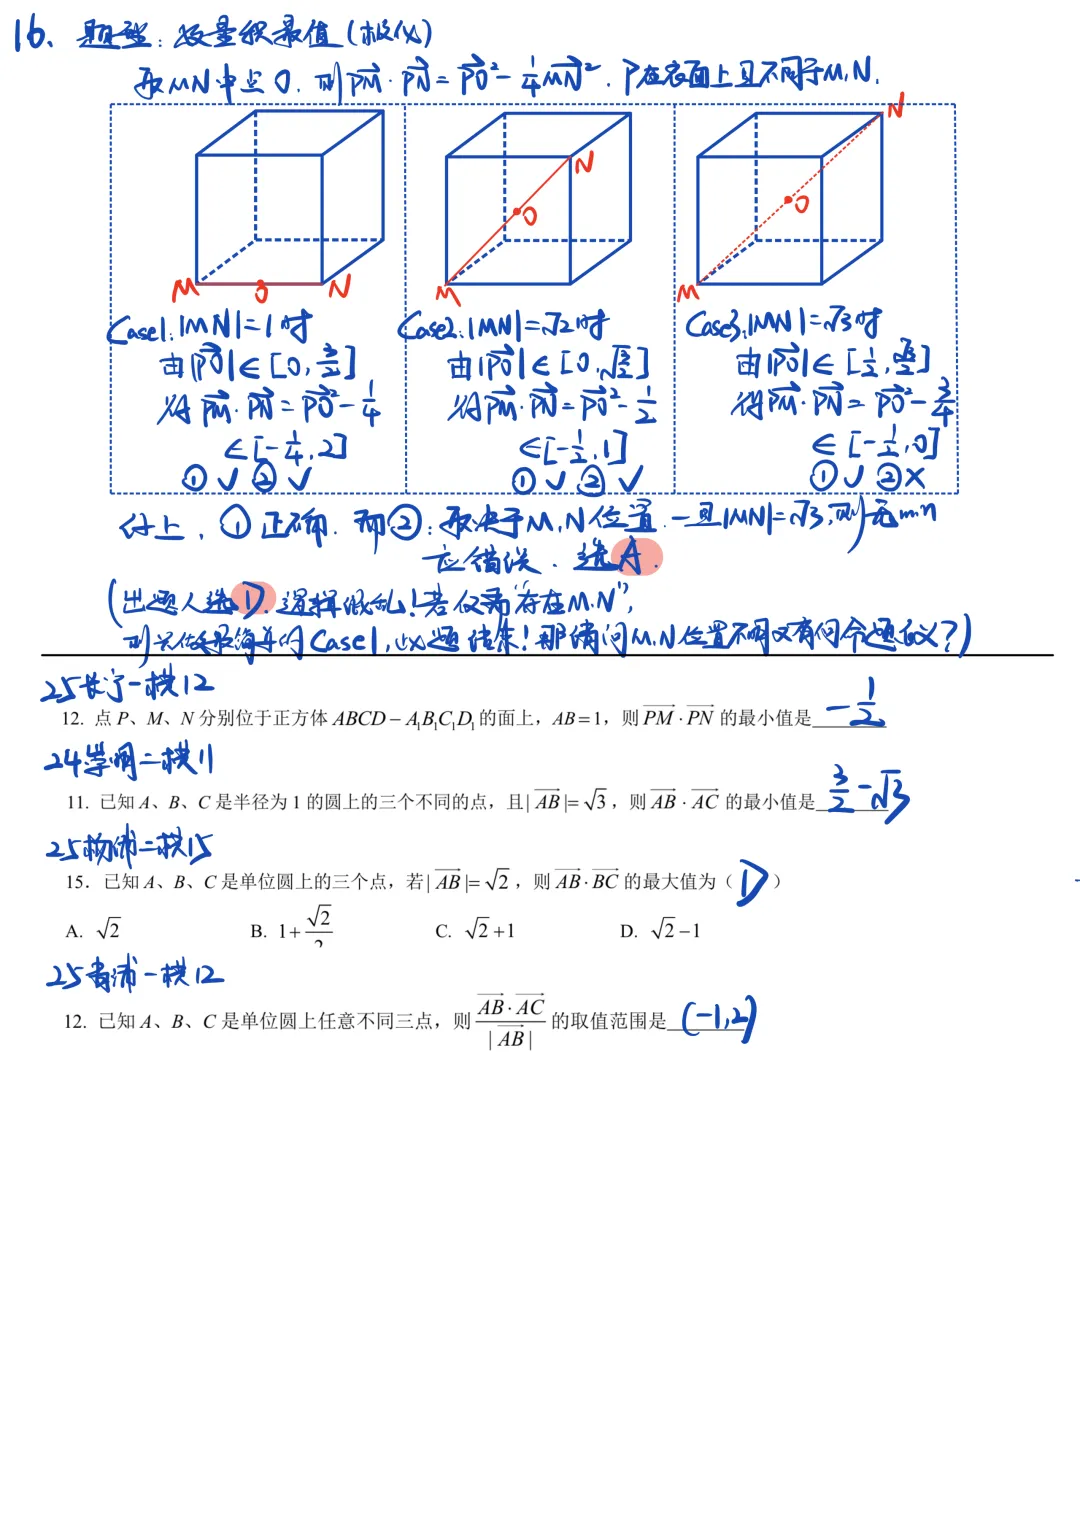 16、题型：数量积最值（极化）
取MN中点O，则 $\overrightarrow{PM}\cdot\overrightarrow{PN}=\overrightarrow{PO}^2-\frac{1}{4}\overrightarrow{MN}^2$．P在表面上且不同于M、N．
M O N
M O N
M O N
Case1：|MN|=1时
由 $|\overrightarrow{PO}|\in[0,\frac{3}{2}]$
得 $\overrightarrow{PM}\cdot\overrightarrow{PN}=\overrightarrow{PO}^2-\frac{1}{4}$
$\in[-\frac{1}{4},2]$
①✓ ②✓
Case2：|MN|=√2时
由 $|\overrightarrow{PO}|\in[0,\sqrt{\frac{3}{2}}]$
得 $\overrightarrow{PM}\cdot\overrightarrow{PN}=\overrightarrow{PO}^2-\frac{1}{2}$
$\in[-\frac{1}{2},1]$
①✓ ②✓
Case3：|MN|=√3时
由 $|\overrightarrow{PO}|\in[\frac{1}{2},\frac{\sqrt{3}}{2}]$
得 $\overrightarrow{PM}\cdot\overrightarrow{PN}=\overrightarrow{PO}^2-\frac{3}{4}$
$\in[-\frac{1}{2},0]$
①✓ ②×
综上，①正确．而②：取决于M、N位置．一旦|MN|=√3，则无min
应错误．选A．
（出题人选D．逻辑混乱！若仅需“存在M、N”，
则只做最简单的Case1，此题结束！那请问M、N位置不同又有何命题意义？）
25长宁一模12
12. 点 P、M、N 分别位于正方体 $ABCD-A_1B_1C_1D_1$ 的面上，AB=1，则 $\overrightarrow{PM}\cdot\overrightarrow{PN}$ 的最小值是 $-\frac{1}{2}$
24崇明二模11
11. 已知 A、B、C 是半径为 1 的圆上的三个不同的点，且 $|\overrightarrow{AB}|=\sqrt{3}$，则 $\overrightarrow{AB}\cdot\overrightarrow{AC}$ 的最小值是 $\frac{3}{2}-\sqrt{3}$
25杨浦二模15
15．已知 A、B、C 是单位圆上的三个点，若 $|\overrightarrow{AB}|=\sqrt{2}$，则 $\overrightarrow{AB}\cdot\overrightarrow{BC}$ 的最大值为（ D ）
A. $\sqrt{2}$ B. $1+\frac{\sqrt{2}}{2}$ C. $\sqrt{2}+1$ D. $\sqrt{2}-1$
25青浦一模12
12. 已知 A、B、C 是单位圆上任意不同三点，则 $\frac{\overrightarrow{AB}\cdot\overrightarrow{AC}}{|\overrightarrow{AB}|}$ 的取值范围是 (-1,2)